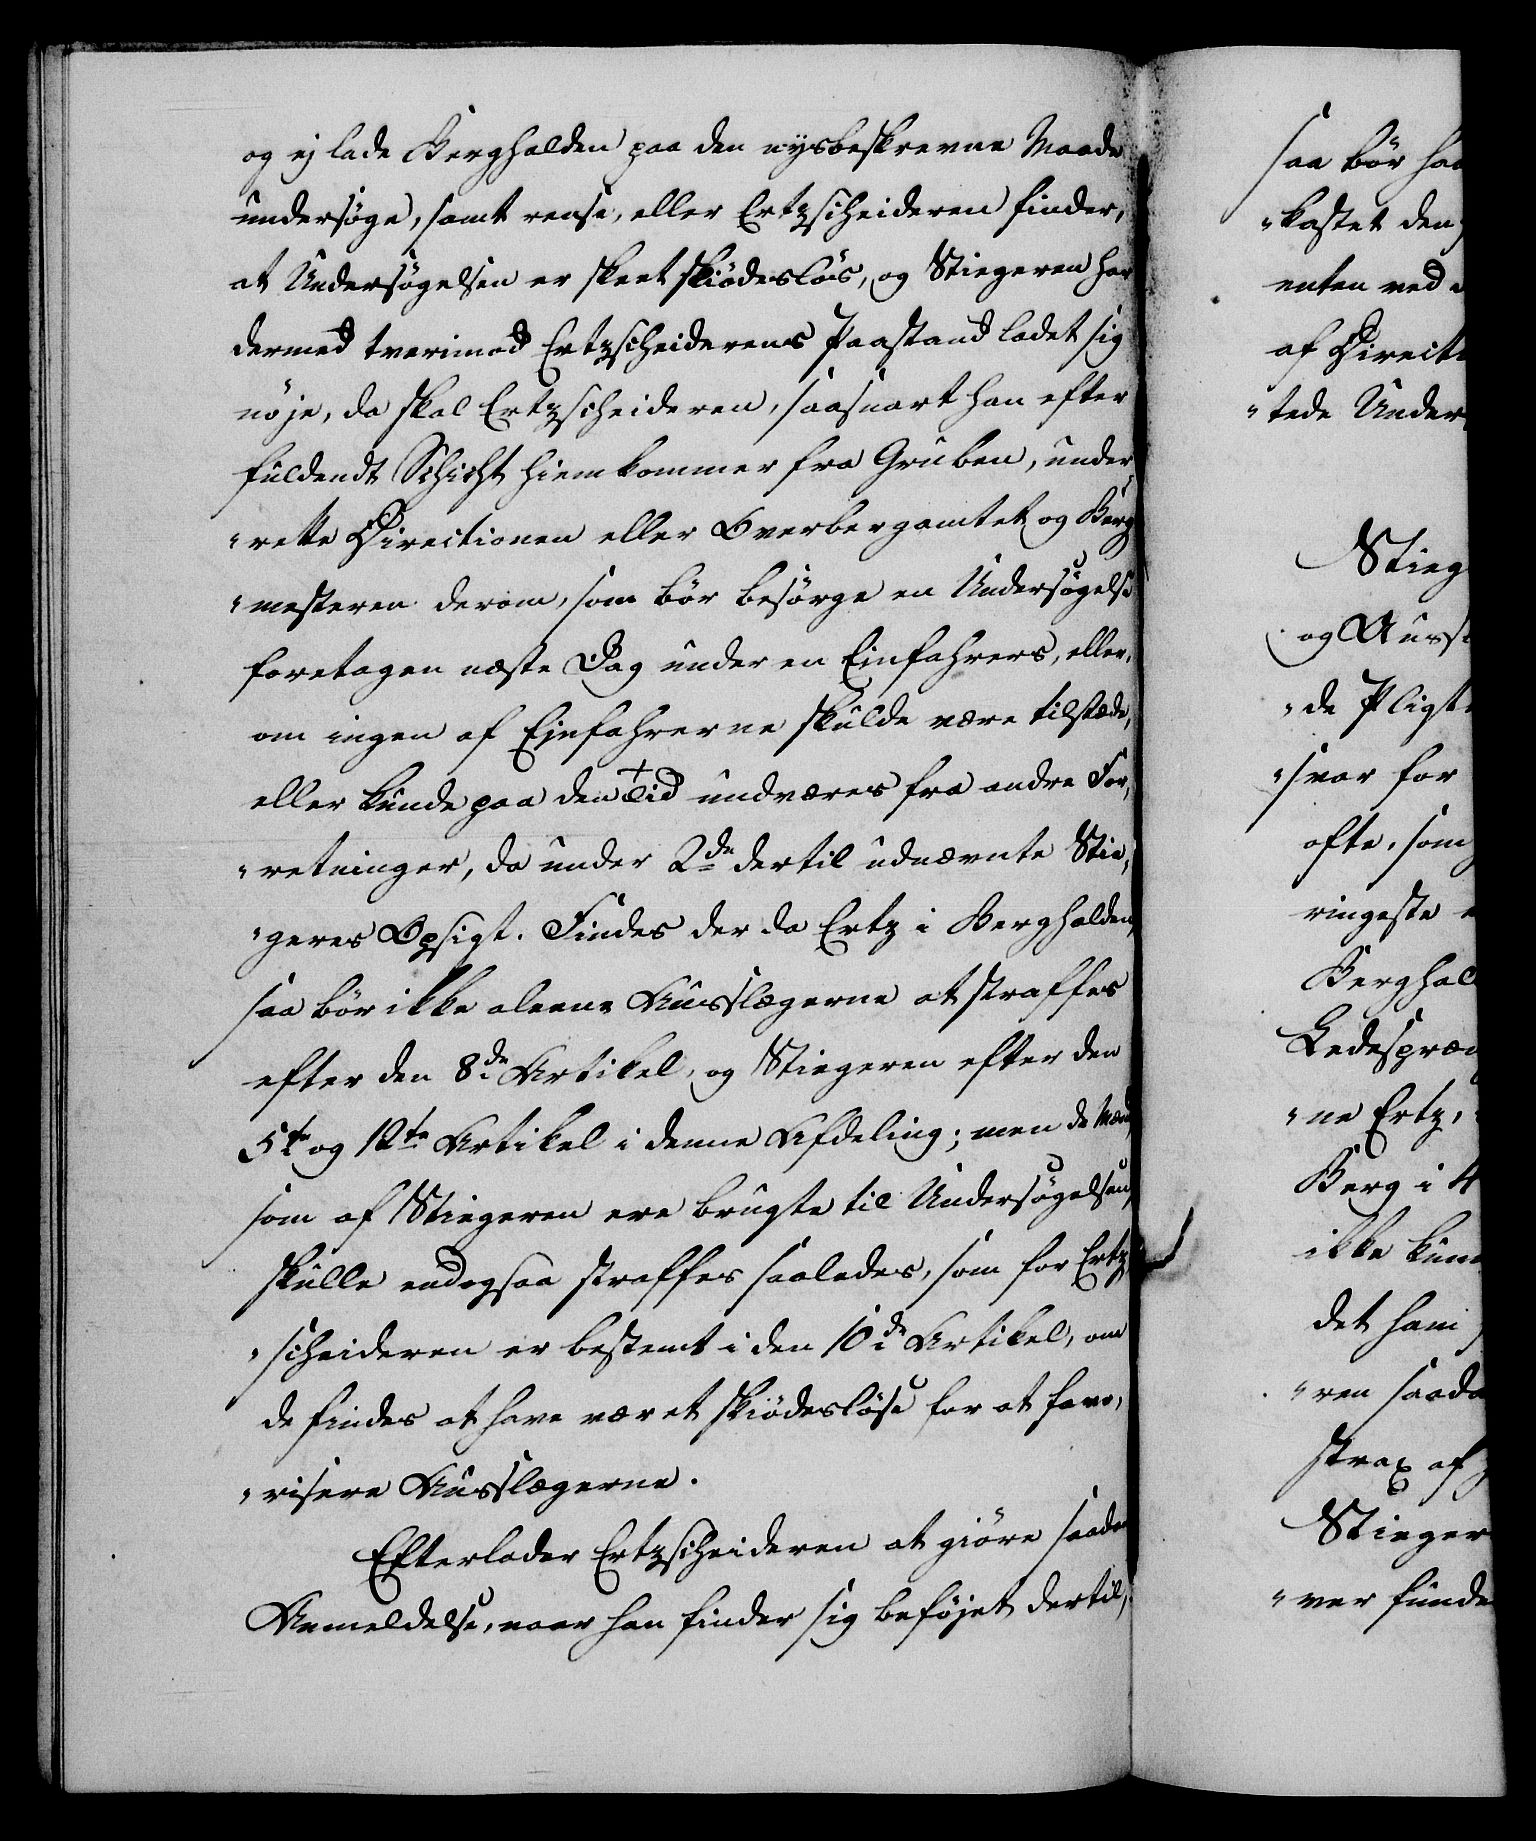 og ej lade Berghalden paa den nysbeskrevne Maade
undersøge, samt rense, eller Ertzscheideren finder,
at Undersøgelsen er skeet skiødesløs, og Stiegeren har
dermed tverimod Ertzscheiderens Paastand ladet sig
nøje, da skal Ertzscheideren, saasnart han efter
fuldendt Schicht hiemkommer fra Gruben, under„
„rette Directionen eller Overbergamtet og Berg„
„mesteren derom, som bør besørge en Undersøgelse
foretagen næste Dag under en Einfahrers, eller,
om ingen af Einfahrerne skulde være tilstæde,
eller kunde paa den Tid undværes fra andre For„
„retninger, da under 2de dertil udnævnte Stie„
„geres Opsigt. Findes der da Ertz i Berghalden,
saa bør ikke aleene Ausslægerne at straffes
efter den 8de Artikel, og Stiegeren efter den
5te og 12te Artikel i denne Afdeling; men de Mænd,
som af Stiegeren ere brugte til Undersøgelsen,
skulle endogsaa straffes saaledes, som for Ertz„
„scheideren er bestemt i den 10de Artikel, om
de findes at have været skiødesløse for at favo„
„risere Ausslægerne.
Efterlader Ertzscheideren at giøre saadan
Anmeldelse, naar han finder sig beføjet dertil,
saa bør ha
„kastet den
enten ved
af Directi
„tede Under
Stieg
og Aussl
„de Pligt
„svar for
ofte, som
ringeste
Berghal
Ledespræn
„ne Ertz,
Berg i 4
ikke kun
det ham
„ren saada
strax af
Stieger
„ver funde